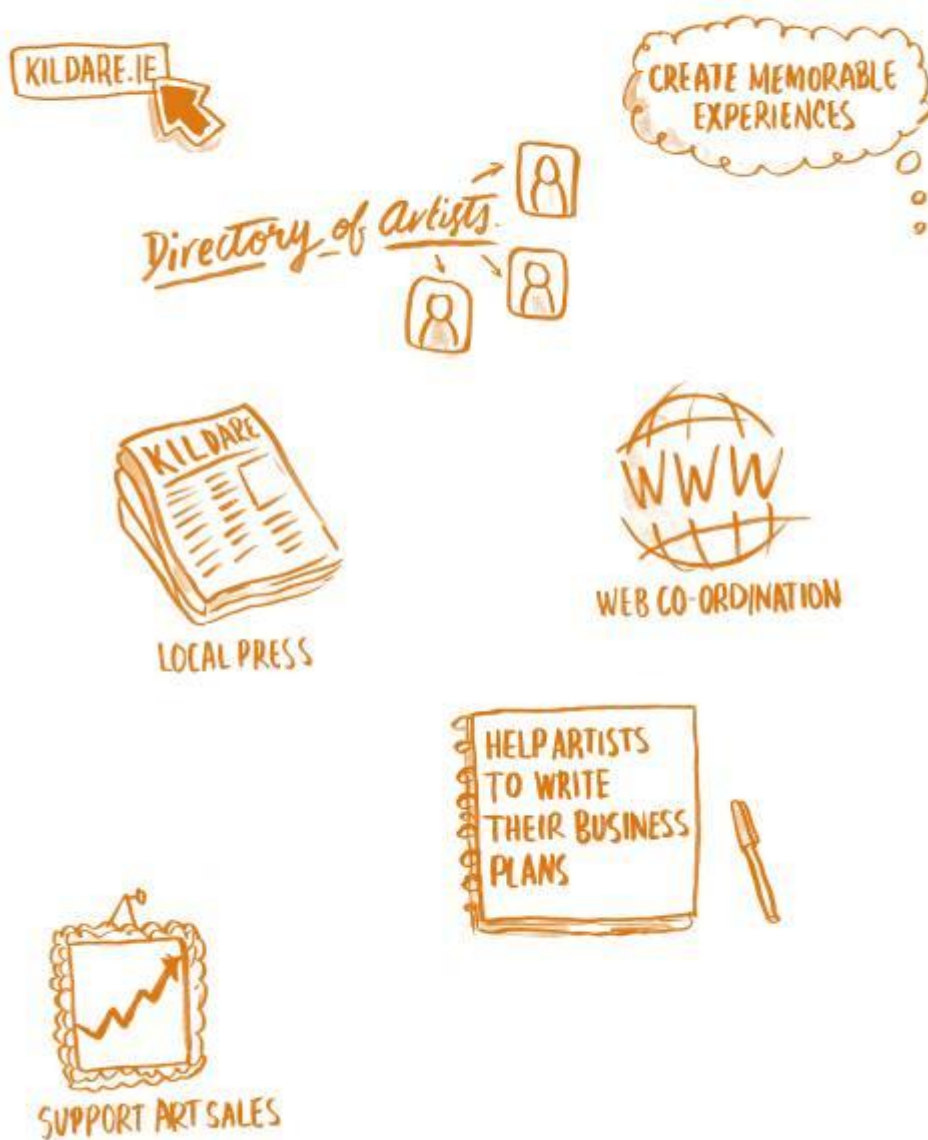 KILDARE.IE
CREATE MEMORABLE
EXPERIENCES
Directory of Artists.
KILDARE
LOCAL PRESS
WWW
WEB CO-ORDINATION
HELP ARTISTS
TO WRITE
THEIR BUSINESS
PLANS
SUPPORT ART SALES